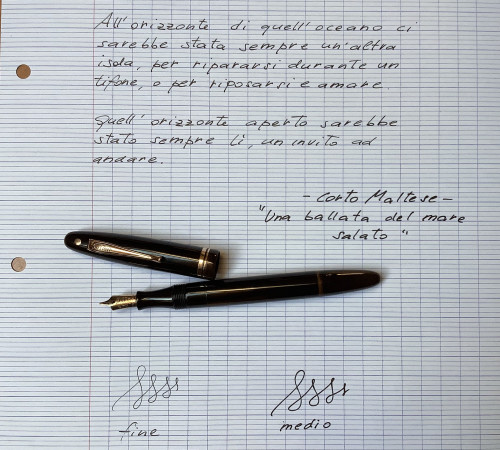 All'orizzonte di quell'oceano ci
sarebbe stata sempre un'altra
isola, per ripararsi durante un
tifone, o per riposarsi e amare.
Quell'orizzonte aperto sarebbe
stato sempre lì, un invito ad
andare.
- Corto Maltese -
"Una ballata del mare
salato"
fine
medio